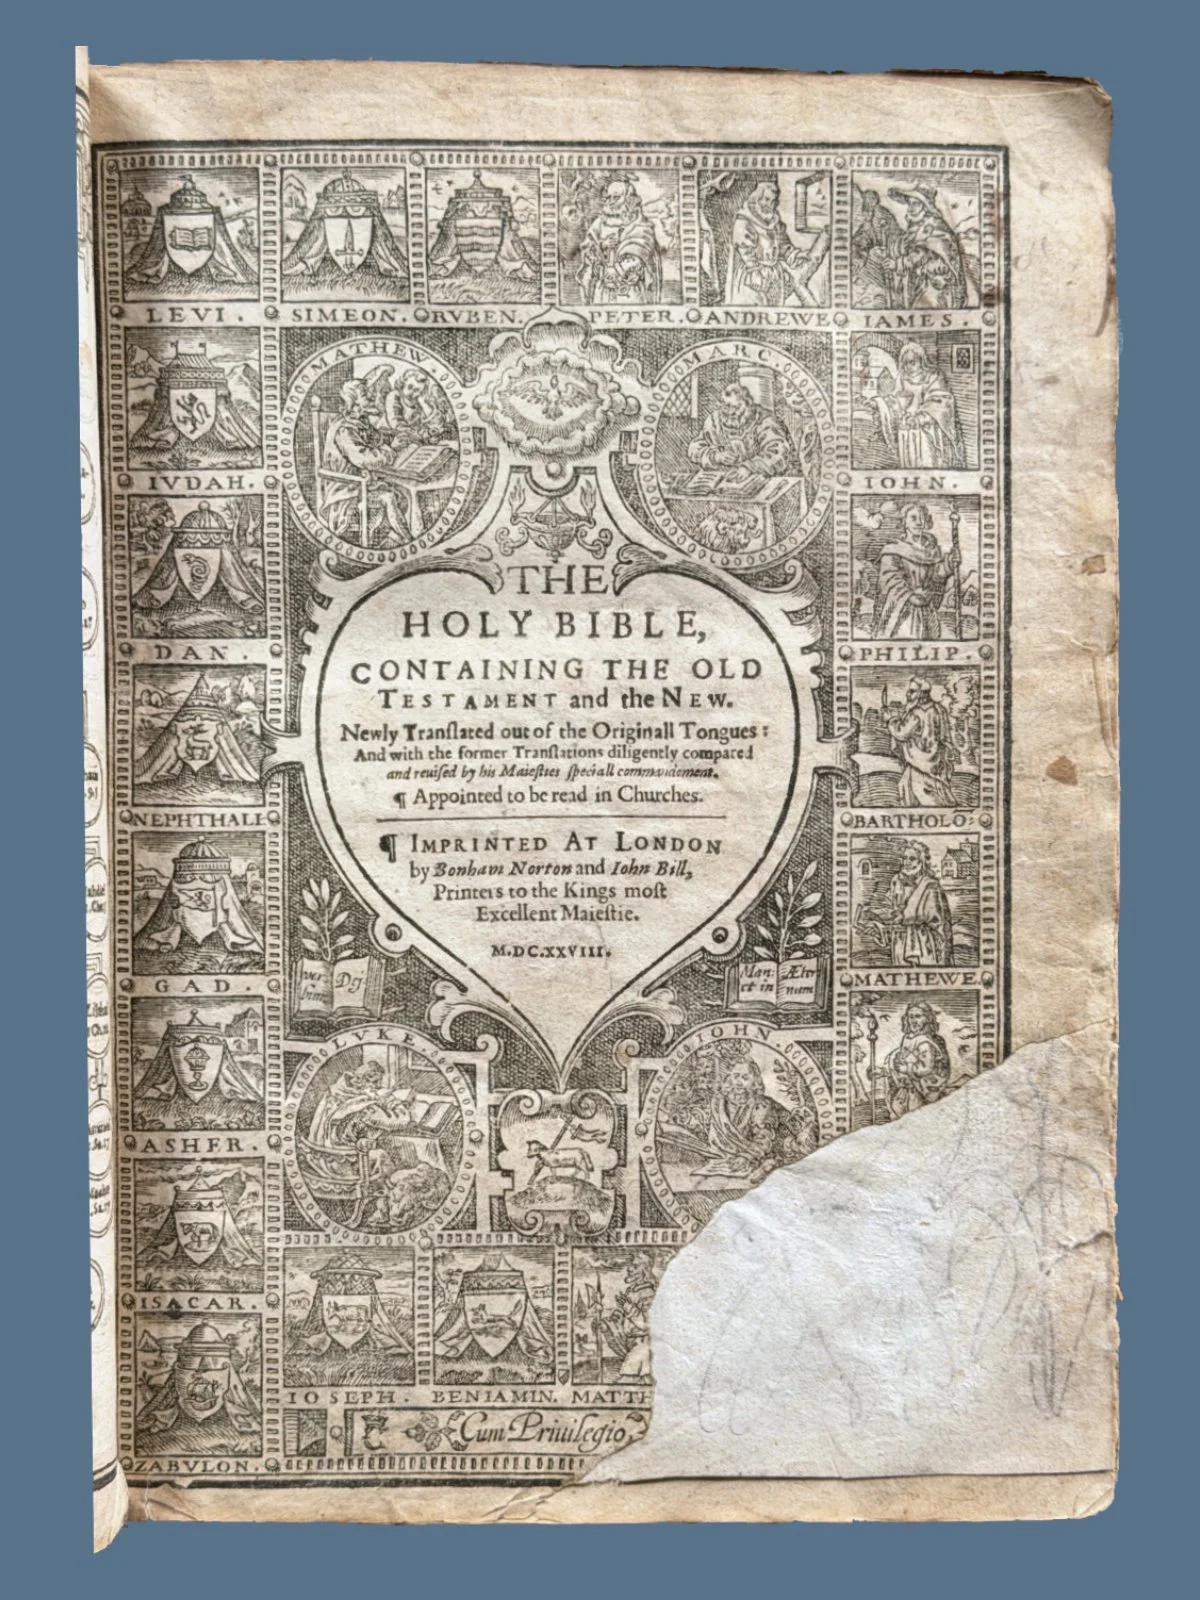 LEVI.
SIMEON.
RVBEN.
PETER.
ANDREWE
IAMES.
IVDAH.
DAN.
NEPHTHALI
GAD.
ASHER.
ISACAR.
ZABVLON.
MATHEW.
MARC.
IOHN.
PHILIP.
BARTHOLO:
MATHEWE.
THE
HOLY BIBLE,
CONTAINING THE OLD
TESTAMENT and the NEW.
Newly Tranſlated out of the Originall Tongues:
And with the former Tranſlations diligently compared
and reuiſed by his Maieſties ſpeciall commandement.
¶ Appointed to be read in Churches.
¶ IMPRINTED AT LONDON
by Bonham Norton and Iohn Bill,
Printers to the Kings moſt
Excellent Maieſtie.
M.DC.XXVIII.
ver-
bum
Dej
Man:
et in
Æter
num
LVKE.
IOHN.
IOSEPH.
BENIAMIN.
MATTH
Cum Priuilegio